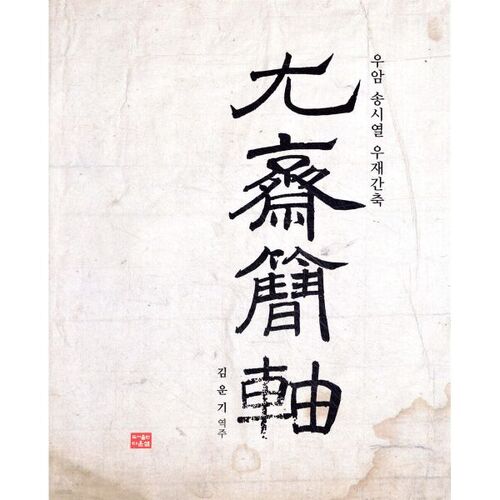 우암 송시열 우재간축
尤齋簡軸
김운기 역주